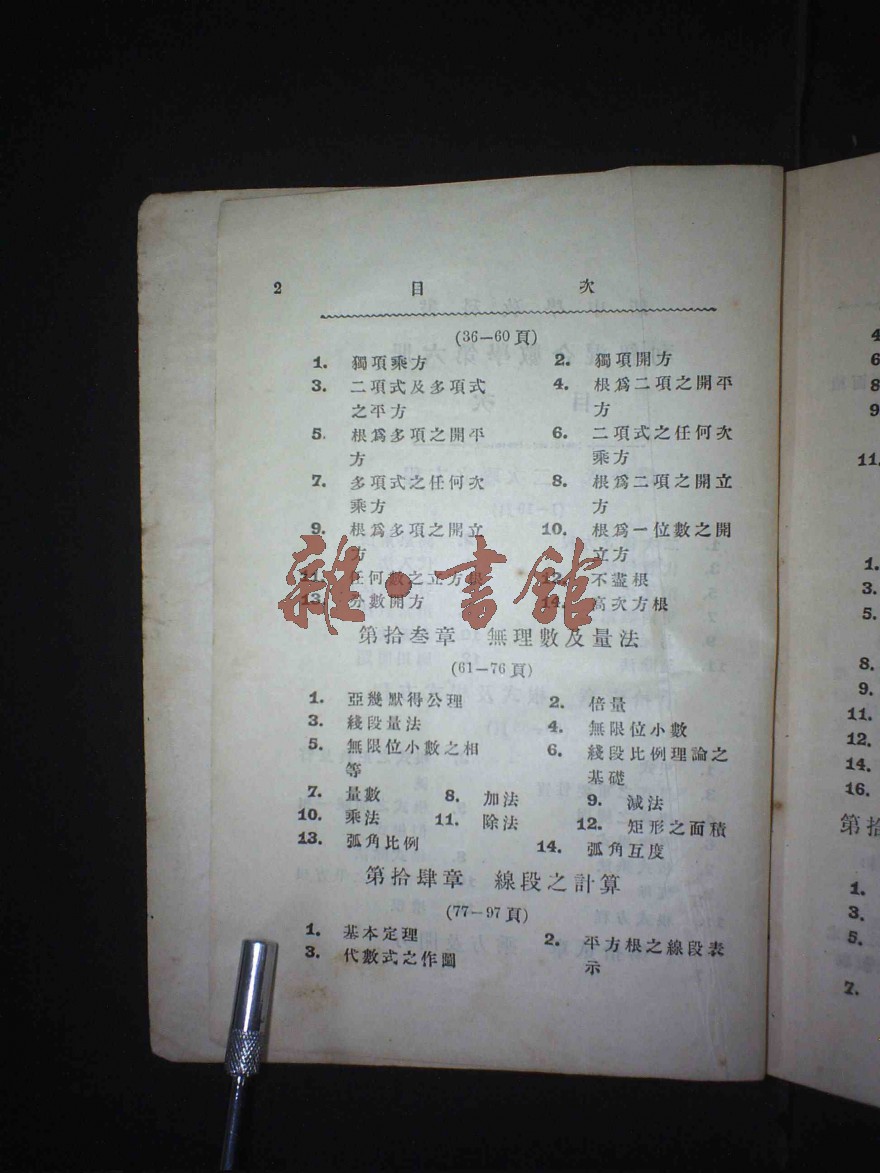 2 目 次
(36—60頁)
1. 獨項乘方 2. 獨項開方
3. 二項式及多項式 4. 根爲二項之開平
之平方 方
5. 根爲多項之開平 6. 二項式之任何次
方 乘方
7. 多項式之任何次 8. 根爲二項之開立
乘方 方
9. 根爲多項之開立 10. 根爲一位數之開
方 立方
11. 任何數之立方根 12. 不盡根
13. 分數開方 14. 高次方根
雜·書館
第拾叁章 無理數及量法
(61—76頁)
1. 亞幾默得公理 2. 倍量
3. 綫段量法 4. 無限位小數
5. 無限位小數之相 6. 綫段比例理論之
等 基礎
7. 量數 8. 加法 9. 減法
10. 乘法 11. 除法 12. 矩形之面積
13. 弧角比例 14. 弧角互度
第拾肆章 線段之計算
(77—97頁)
1. 基本定理 2. 平方根之線段表
3. 代數式之作圖 示
4
6
8
9
11.
1.
3.
5.
8.
9.
11.
12.
14.
16.
第拾
1.
3.
5.
7.